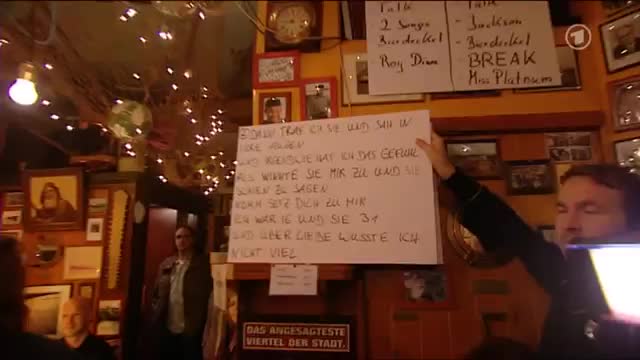 Talk
2 Songs
Bierdeckel
- Roy Dian
Talk
- Jackson
- Bierdeckel
- BREAK
Miss Platnum
DANN TRAF ICH SIE UND SAH IN
IHRE AUGEN
UND IRGENDWIE HAT ICH DAS GEFÜHL
ALS WINKTE SIE MIR ZU UND SIE
SCHIEN ZU SAGEN
KOMM SETZ DICH ZU MIR
ICH WAR 16 UND SIE 31
UND ÜBER LIEBE WUSSTE ICH
NICHT VIEL
DAS ANGESAGTESTE
VIERTEL DER STADT.